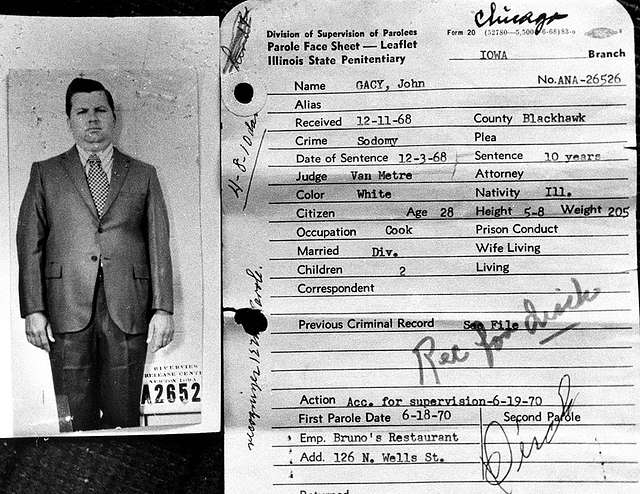 Chicago
Division of Supervision of Parolees
Form 20
Parole Face Sheet — Leaflet
Illinois State Penitentiary
IOWA Branch
Name GACY, John No. ANA-26526
Alias
Received 12-11-68 County Blackhawk
Crime Sodomy Plea
Date of Sentence 12-3-68 Sentence 10 years
Judge Van Metre Attorney
Color White Nativity Ill.
Citizen Age 28 Height 5-8 Weight 205
Occupation Cook Prison Conduct
Married Div. Wife Living
Children 2 Living
Correspondent
Previous Criminal Record See File
Rec for
Action Acc. for supervision-6-19-70
First Parole Date 6-18-70 Second Parole
Emp. Bruno's Restaurant
Add. 126 N. Wells St.
Returned
RIVERVIEW
RELEASE CENT
NEWTON IOWA
A2652